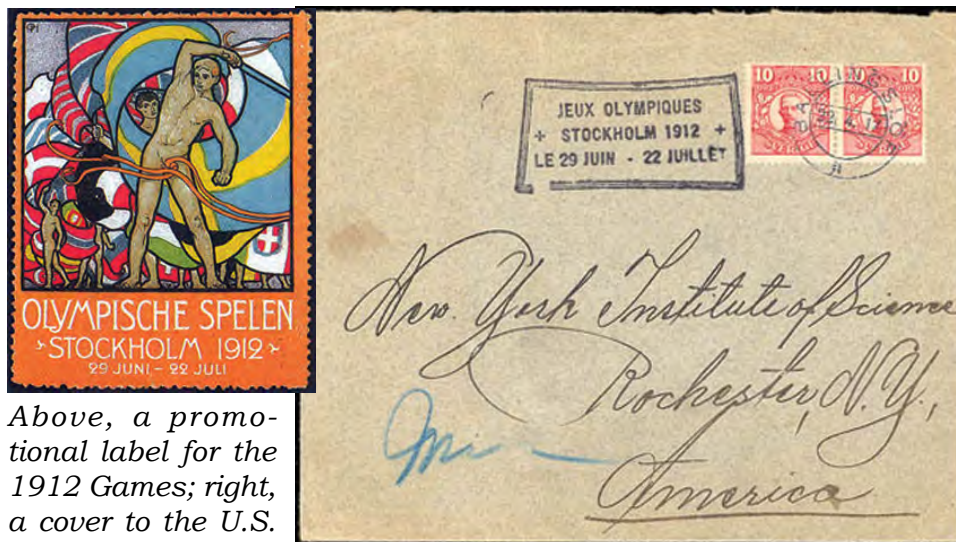 OLYMPISCHE SPELEN
STOCKHOLM 1912
29 JUNI - 22 JULI
Above, a promo-
tional label for the
1912 Games; right,
a cover to the U.S.
JEUX OLYMPIQUES
+ STOCKHOLM 1912 +
LE 29 JUIN - 22 JUILLET
10 10 10
SVERIGE
New York Institute of Science
Rochester, N.Y.,
America